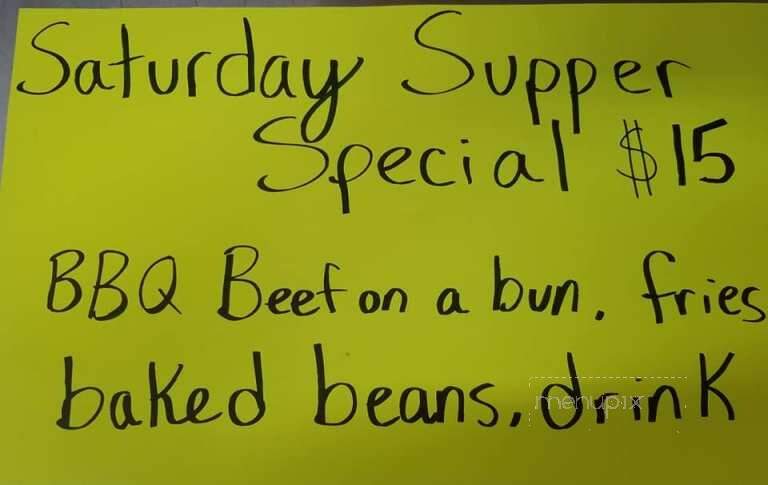 Saturday Supper
Special $15
BBQ Beef on a bun. fries
baked beans, drink
menupix